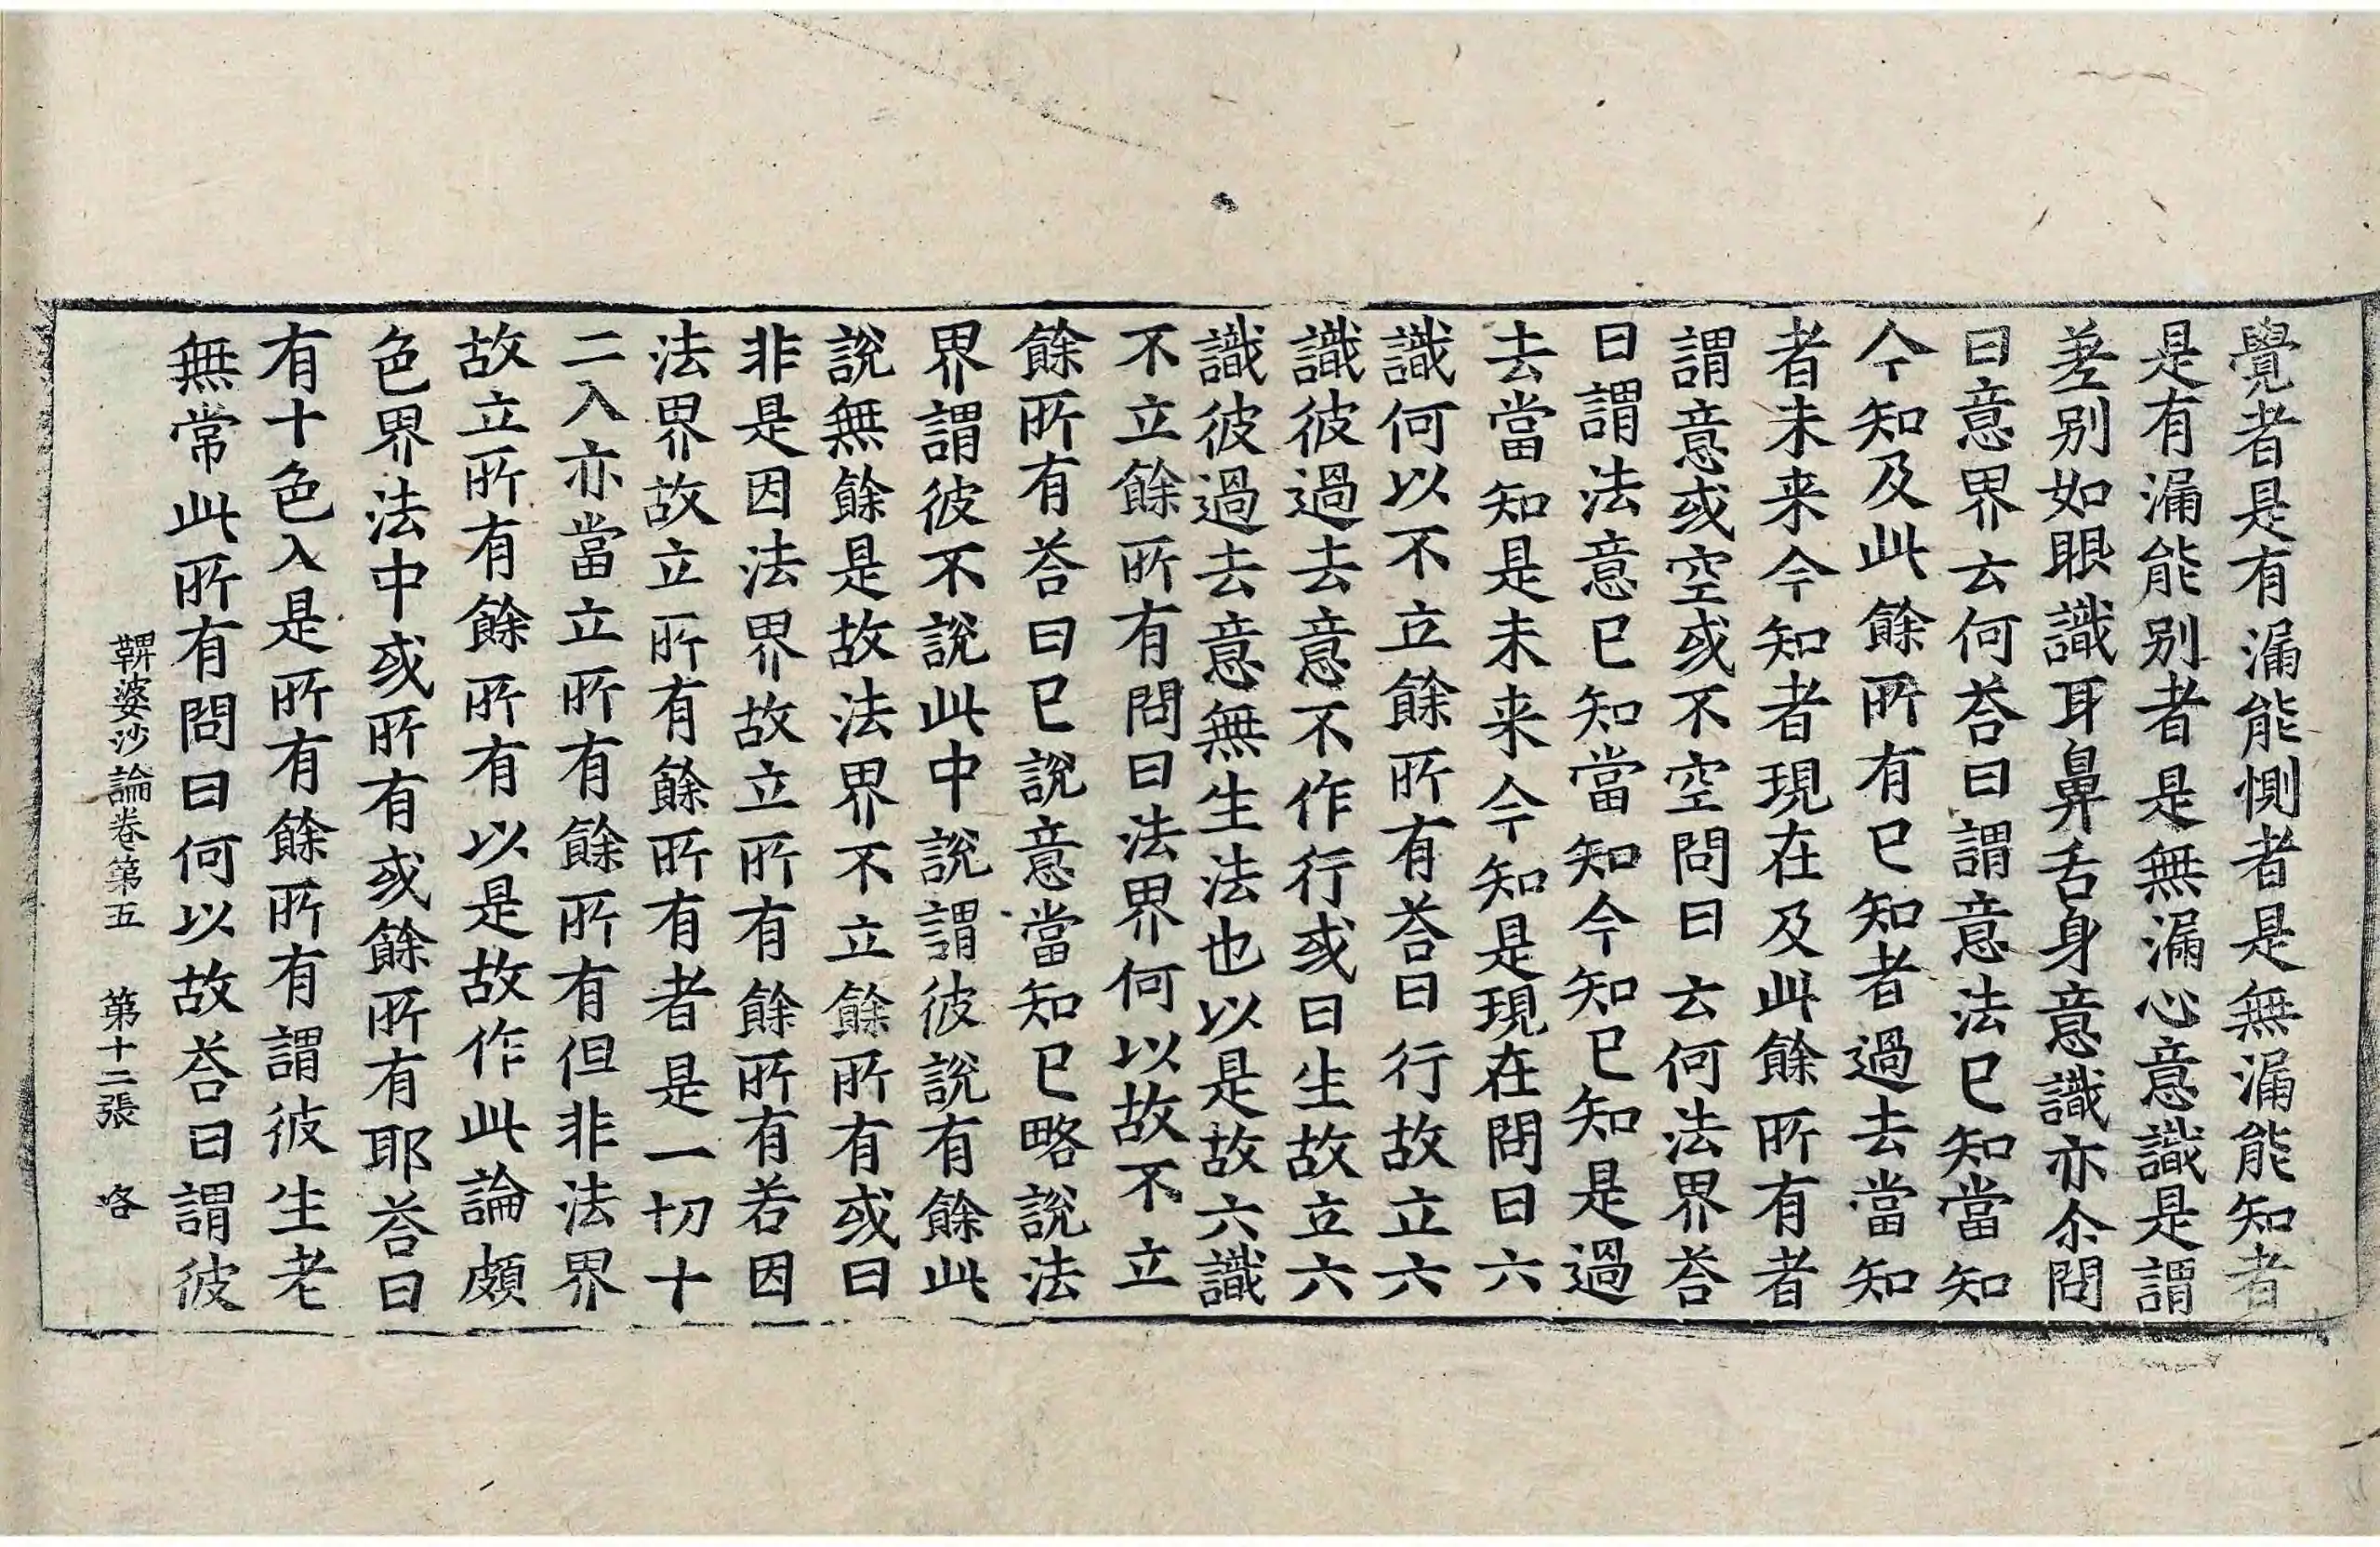 覺者是有漏能惻者是無漏能知者
是有漏能别者是無漏心意識是謂
差别如眼識耳鼻舌身意識亦尒問
曰意界云何荅曰謂意法已知當知
今知及此餘所有已知者過去當知
者未来今知者現在及此餘所有者
謂意或空或不空問曰云何法界荅
曰謂法意已知當知今知已知是過
去當知是未来今知是現在問曰六
識何以不立餘所有荅曰行故立六
識彼過去意不作行或曰生故立六
識彼過去意無生法也以是故六識
不立餘所有問曰法界何以故不立
餘所有荅曰已說意當知已略說法
界謂彼不說此中說謂彼說有餘此
說無餘是故法界不立餘所有或曰
非是因法界故立所有餘所有若因
法界故立所有餘所有者是一切十
二入亦當立所有餘所有但非法界
故立所有餘所有以是故作此論頗
色界法中或所有或餘所有耶荅曰
有十色入是所有餘所有謂彼生老
無常此所有問曰何以故荅曰謂彼
鞞婆沙論卷第五　第十二張　咯